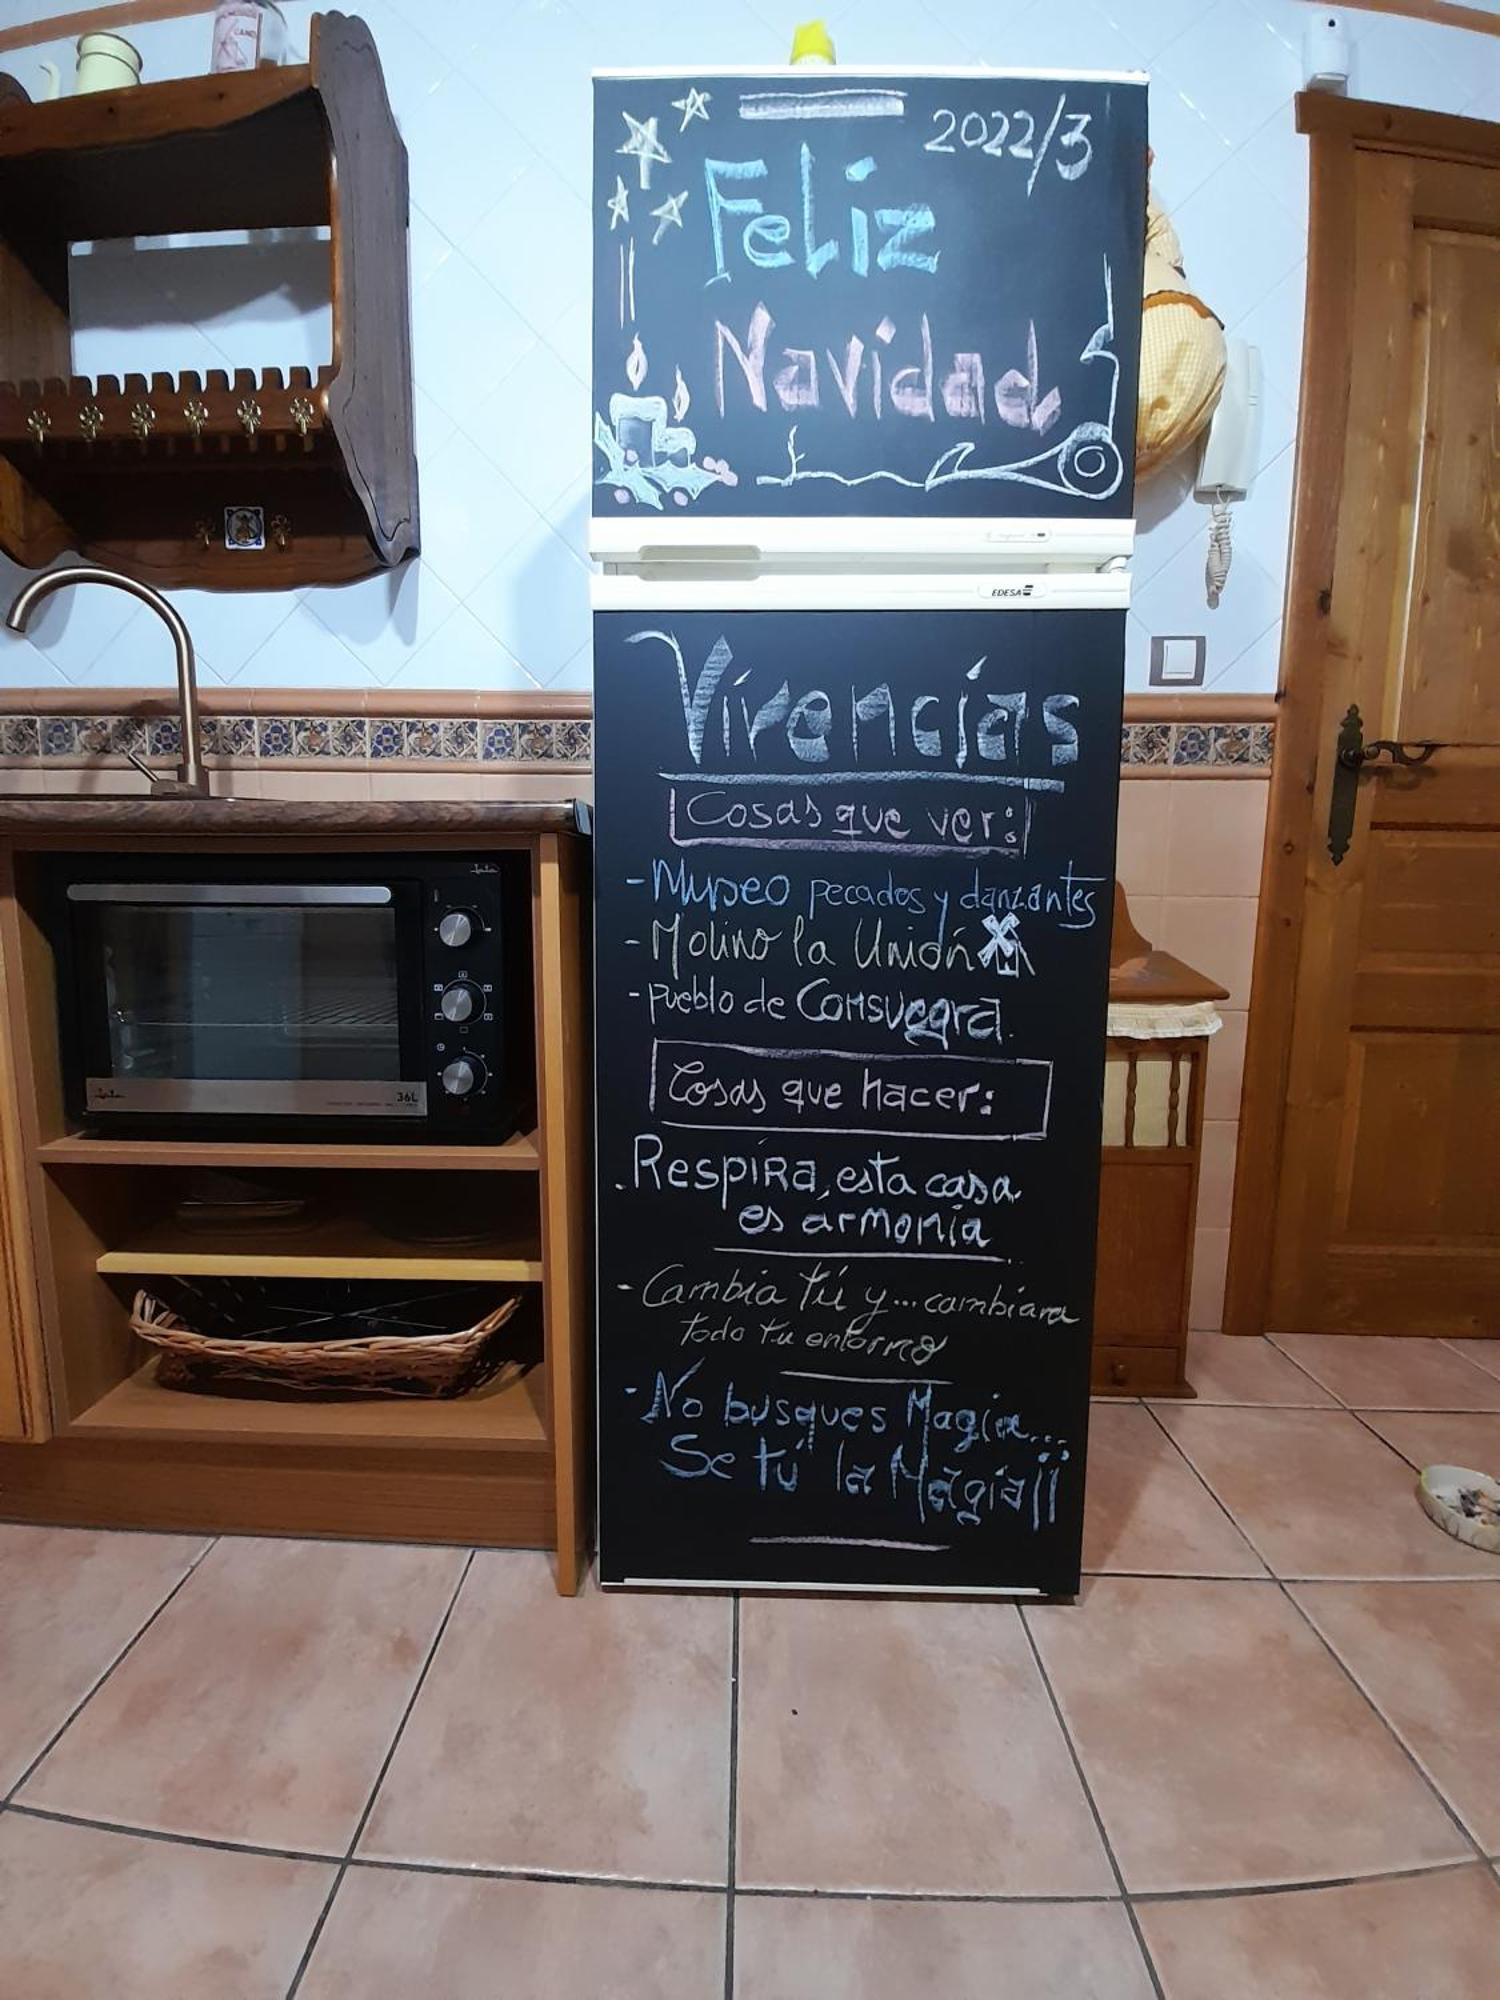 2022/3
Feliz
Navidad
EDESA
Vivencias
Cosas que ver:
- Museo pecados y danzantes
- Molino la Unión
- pueblo de Consuegra.
Cosas que hacer:
. Respira, esta casa
es armonía
- Cambia tú y... cambiara
todo tu entorno
- No busques Magia...
Se tú la Magia¡¡
36L